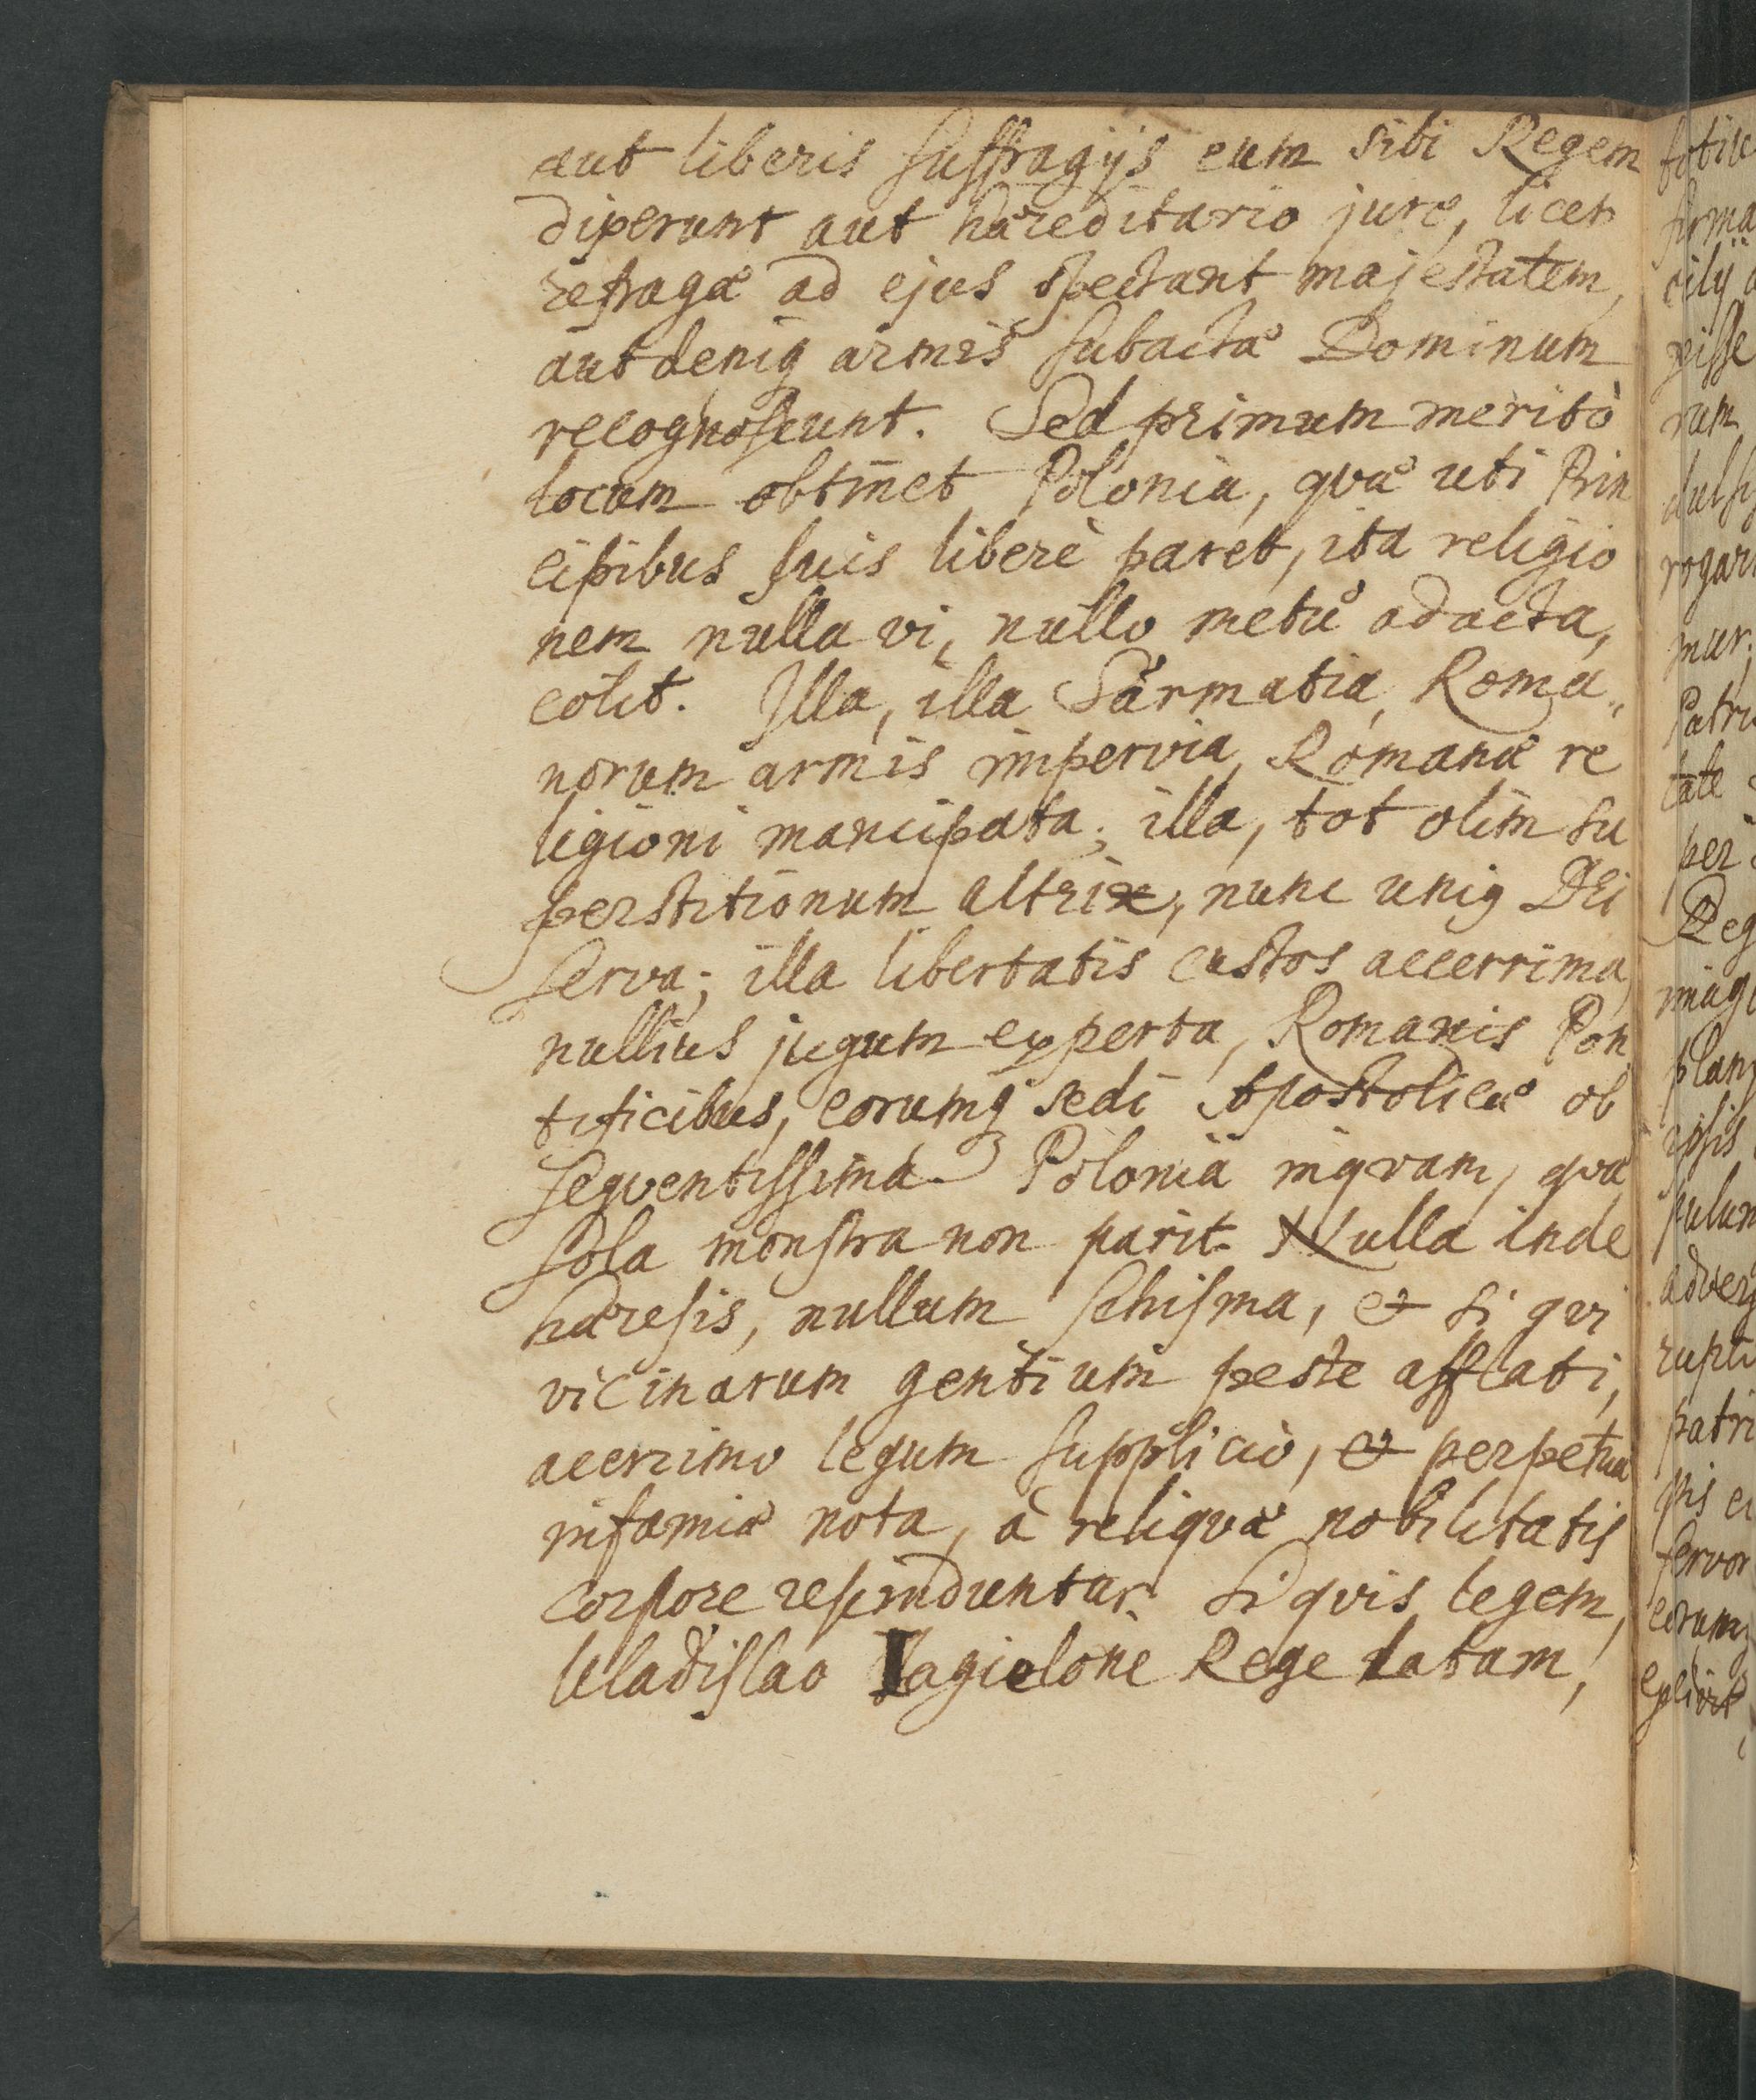 aut liberis suffragijs eum sibi Regem
dixerunt aut hæreditario jure, licet
refragæ ad ejus spectant majestatem,
aut deniq armis subactæ Dominum
recognoscunt. Sed primum meritò
locum obtinet Polonia, qvæ uti Prin
cipibus suis liberè paret, ita religio
nem nulla vi, nullo metu adacta,
colit. Illa, illa Sarmatia, Roma„
norum armis impervia, Romanæ re
ligioni mancipata; illa, tot olim su
perstitionum altrix, nunc uniq DEi
serva; illa libertatis custos acerrima,
nullius jugum experta, Romanis Pon
tificibus, eorumq sedi Apostolicæ ob
seqventissima. Polonia inqvam, qvæ
sola monstra non parit. Nulla inde
hæresis, nullum schisma, & si qvi
vicinarum gentium peste afflati,
acerrimo legum supplicio, & perpetua
infamiæ nota, à reliqvæ nobilitatis
corpore rescinduntur. Si qvis legem,
Uladislao Jagielone Rege latam,